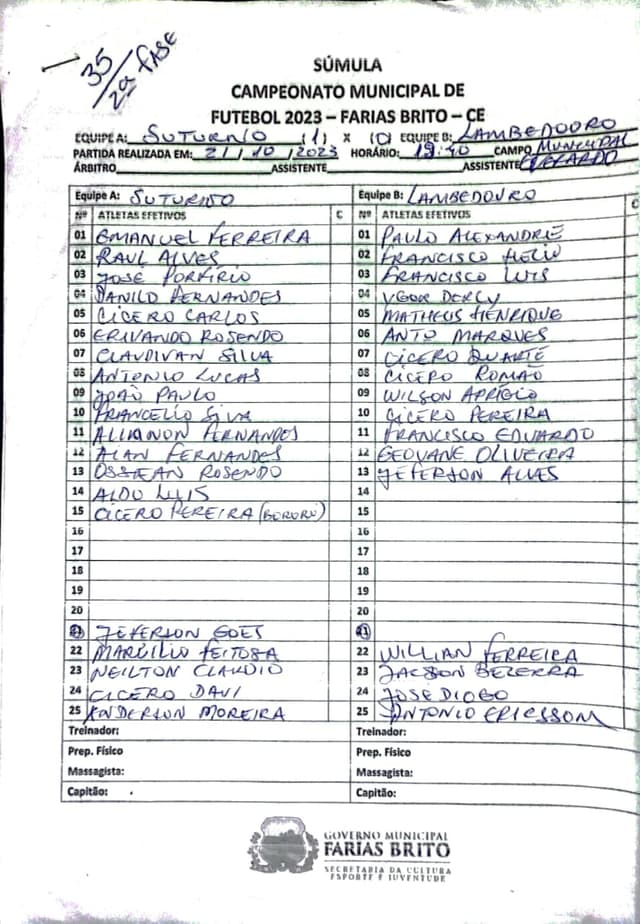 35/2ª FASE
SÚMULA
CAMPEONATO MUNICIPAL DE
FUTEBOL 2023 – FARIAS BRITO – CE
EQUIPE A: SUTURNO (1) X (0) EQUIPE B: LAMBEDOURO
PARTIDA REALIZADA EM: 21/10/2023 HORÁRIO: 19:40 CAMPO MUNICIPAL
ÁRBITRO ASSISTENTE ASSISTENTE EVERARDO
Equipe A: SUTURNO Equipe B: LAMBEDOURO
Nº ATLETAS EFETIVOS C Nº ATLETAS EFETIVOS C
01 EMANUEL FERREIRA 01 PAULO ALEXANDRE
02 RAUL ALVES 02 FRANCISCO HELIO
03 JOSÉ PORFÍRIO 03 FRANCISCO LUIS
04 DANILO FERNANDES 04 YGOR DERCY
05 CÍCERO CARLOS 05 MATHEUS HENRIQUE
06 ERIVANDO ROSENDO 06 ANTO MARQUES
07 CLAUDIVAN SILVA 07 CÍCERO DUARTE
08 ANTONIO LUCAS 08 CÍCERO ROMÃO
09 JOÃO PAULO 09 WILSON APRIGIO
10 FRANCELIO SILVA 10 CÍCERO PEREIRA
11 ALLIANON FERNANDES 11 FRANCISCO EDUARDO
12 ALAN FERNANDES 12 GEOVANE OLIVEIRA
13 OSSEAN ROSENDO 13 JEFERSON ALVES
14 ALDO LUIS 14
15 CÍCERO PEREIRA (BORORÓ) 15
16 16
17 17
18 18
19 19
20 20
21 JEFERSON GOES 21
22 MARCILIO FEITOSA 22 WILLIAN FERREIRA
23 NEILTON CLAUDIO 23 JACSON BEZERRA
24 CICERO DAVI 24 JOSE DIOGO
25 ANDERSON MOREIRA 25 ANTONIO ERICSSOM
Treinador: Treinador:
Prep. Físico Prep. Físico
Massagista: Massagista:
Capitão: Capitão:
GOVERNO MUNICIPAL
FARIAS BRITO
SECRETARIA DA CULTURA
ESPORTE E JUVENTUDE